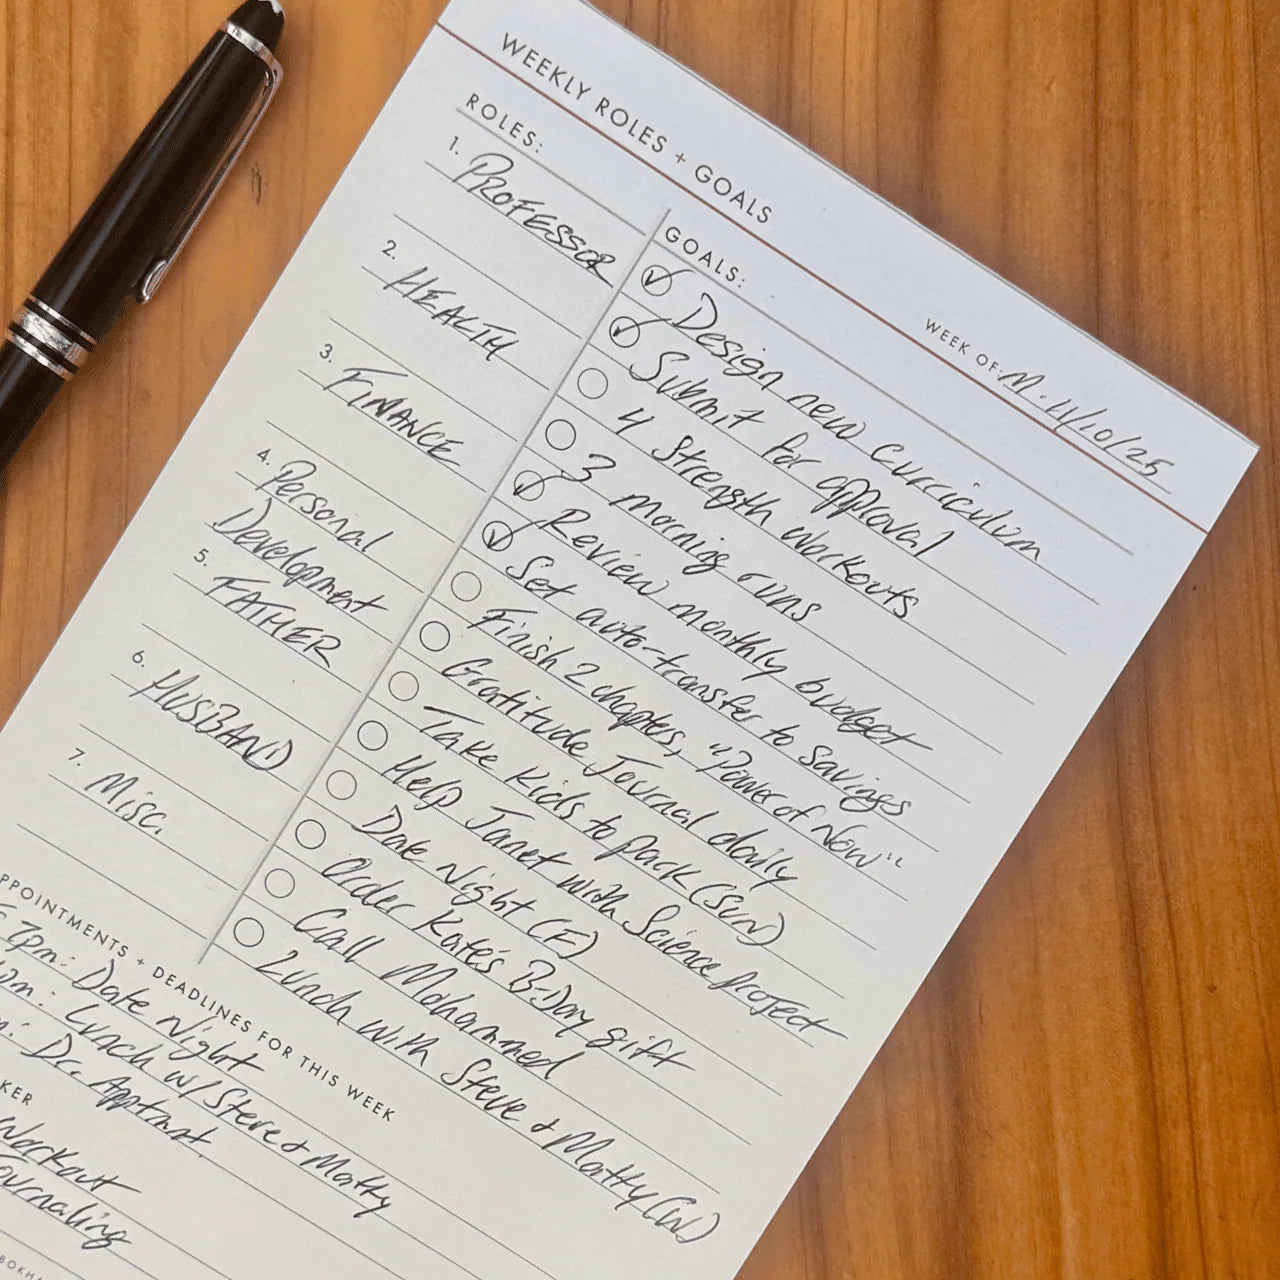 WEEKLY ROLES + GOALS
WEEK OF: M. 11/10/25
ROLES:
1. PROFESSOR
2. HEALTH
3. FINANCE
4. Personal
Development
5. FATHER
6. HUSBAND
7. Misc.
GOALS:
Design new curriculum
Submit for approval
4 Strength workouts
3 morning runs
Review monthly budget
Set auto-transfer to savings
Finish 2 chapters, "Power of Now"
Gratitude Journal daily
Take Kids to park (SUN)
Help Janet with Science Project
Date Night (F)
Order Kate's B-Day gift
Call Mohammed
Lunch with Steve + Matty (W)
PPOINTMENTS + DEADLINES FOR THIS WEEK
7pm: Date Night
Lunch w/ Steve + Matty
Dr. Apptmnt.
KER
Workout
ournaling